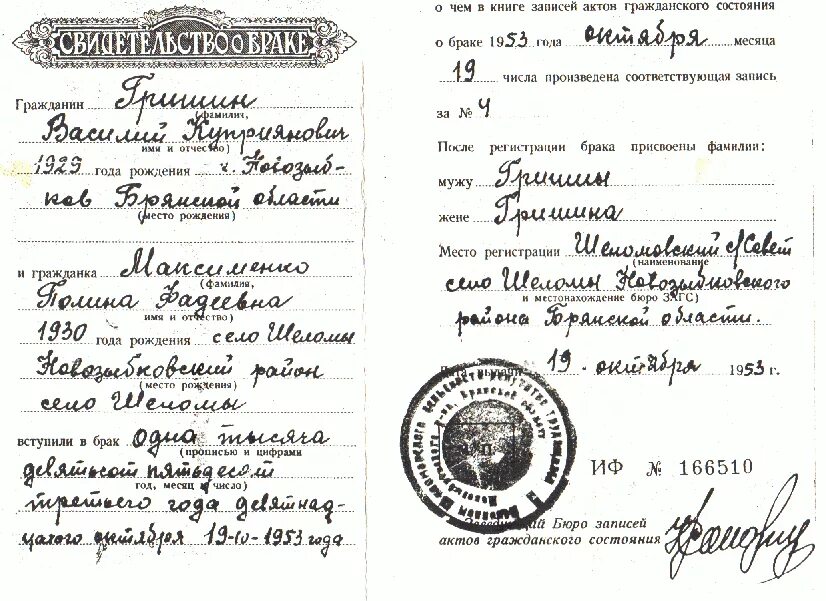 СВИДЕТЕЛЬСТВО О БРАКЕ
Гражданин Гришин
(фамилия,
Василий Куприянович
имя и отчество)
1929 года рождения г. Новозыб-
ков Брянской области
(место рождения)
и гражданка Максименко
(фамилия,
Полина Фадеевна
имя и отчество)
1930 года рождения село Шеломы
Новозыбковский район
(место рождения)
село Шеломы
вступили в брак одна тысяча
(прописью и цифрами
девятьсот пятьдесят
год, месяц и число)
третьего года девятнад-
цатого октября 19-10-1953 года
о чем в книге записей актов гражданского состояния
о браке 1953 года октября месяца
19 числа произведена соответствующая запись
за № 4
После регистрации брака присвоены фамилии:
мужу Гришин
жене Гришина
Место регистрации Шеломовский с/Совет
(наименование
село Шеломы Новозыбковского
и местонахождение бюро ЗАГС)
района Брянской области.
Дата выдачи 19 октября 1953 г.
ИФ № 166510
Бюро записей
актов гражданского состояния